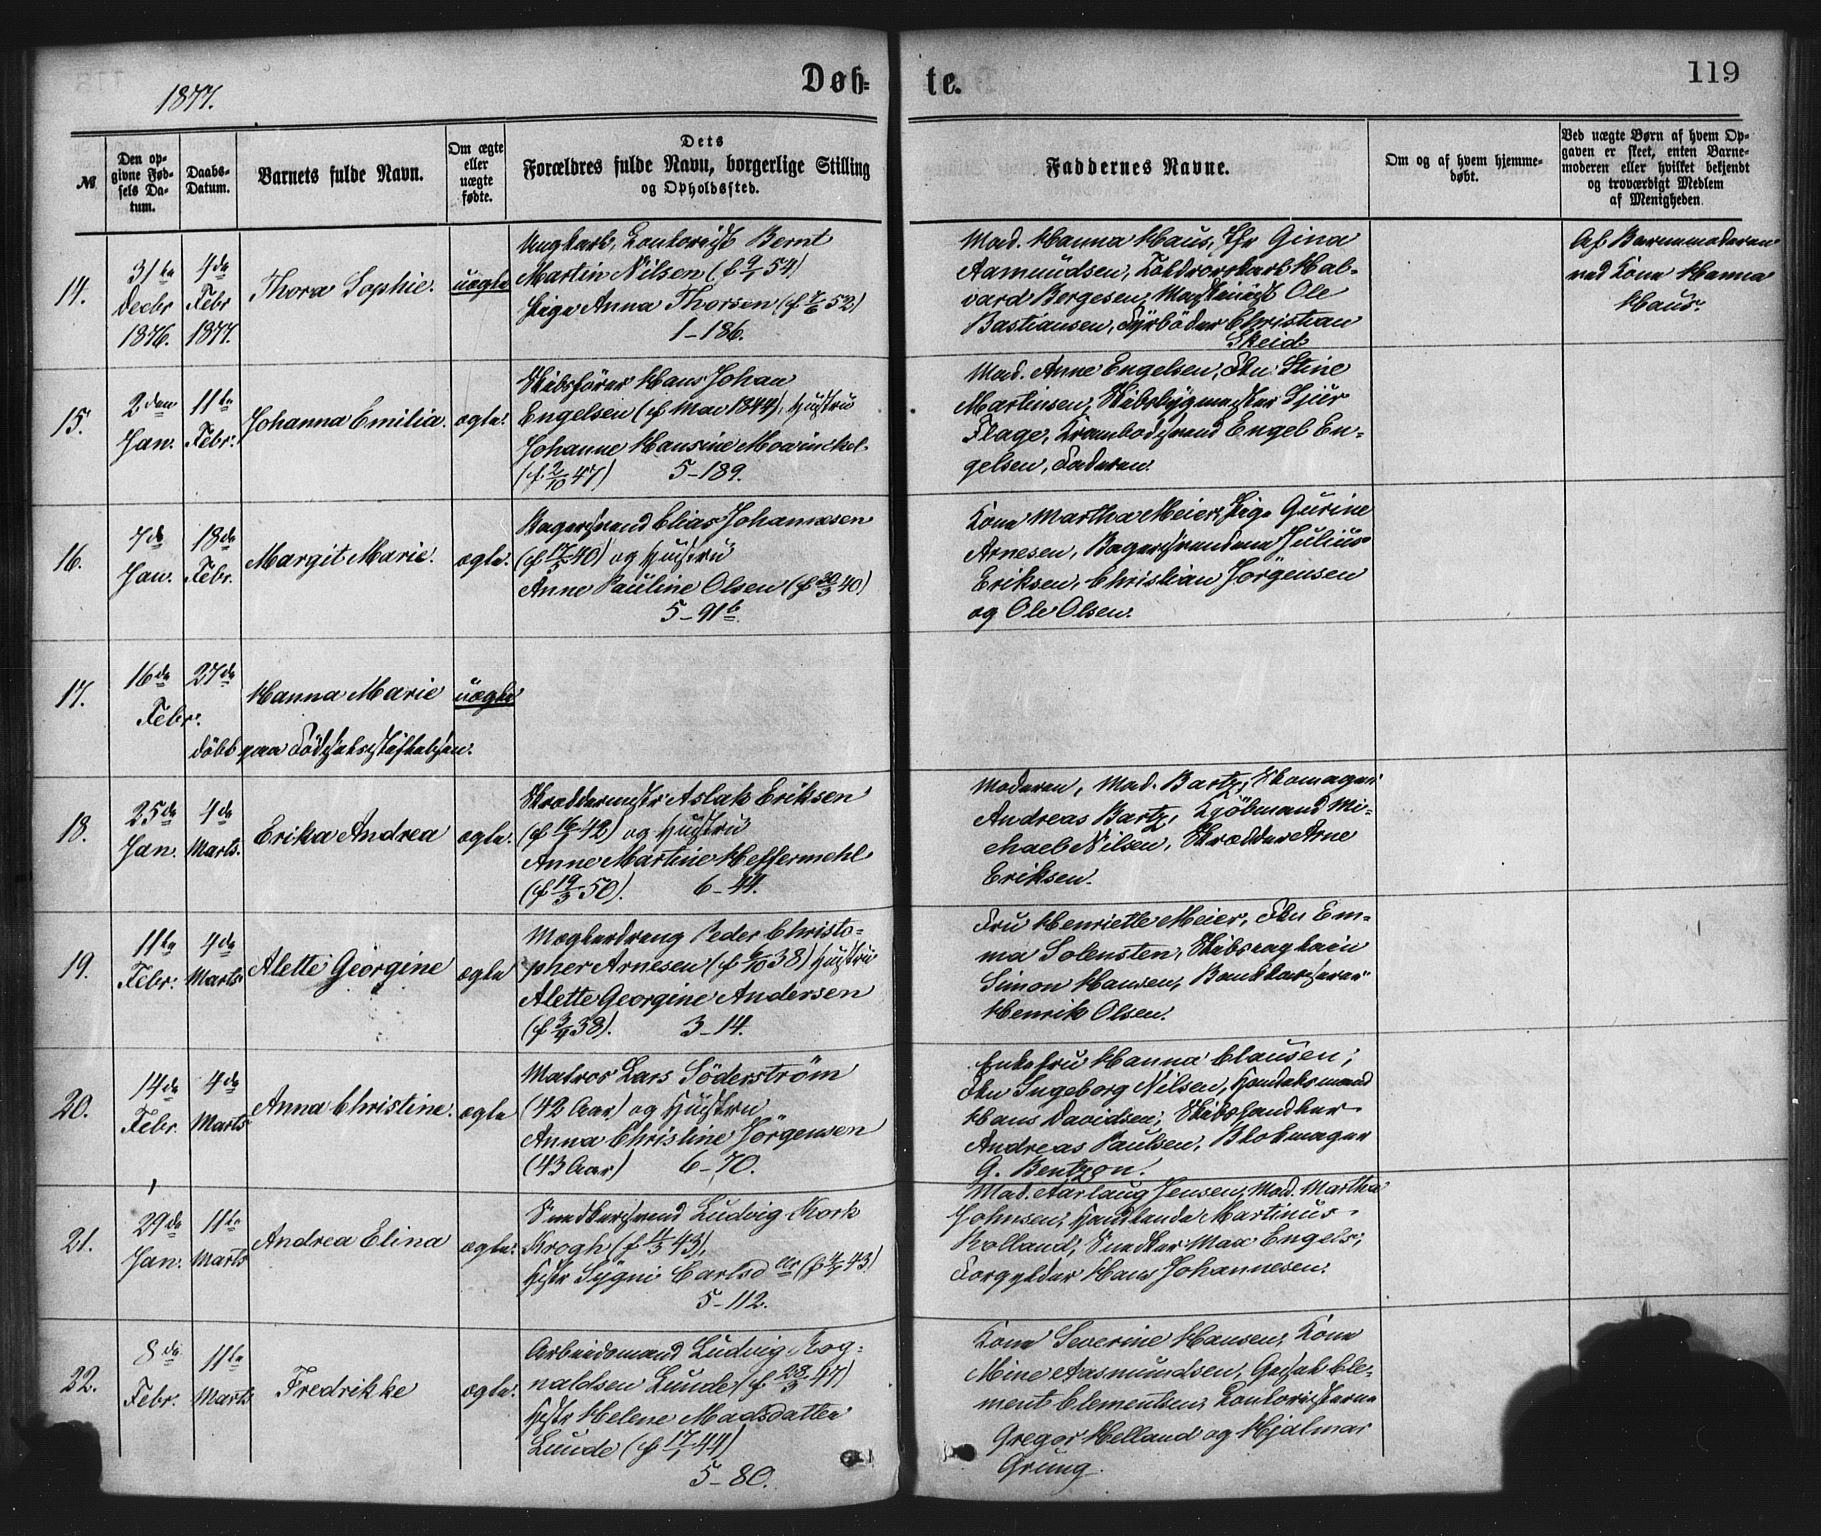 1877.
Døb-
te.
119
№
Den op-
givne Fød-
sels Da-
tum.
Daabs-
Datum.
Barnets fulde Navn.
Om ægte
eller
uægte
fødte.
Dets
Forældres fulde Navn, borgerlige Stilling
og Opholdssted.
Faddernes Navne.
Om og af hvem hjemme-
døbt.
Ved uægte Børn af hvem Op-
gaven er skeet, enten Barne-
moderen eller hvilket bekjendt
og troværdigt Medlem
af Menigheden.
14.
31te
Decbr
1876.
4de
Febr
1877.
Thora Sophie.
uægte
Ungkarl, Kontorist Bernt
Martin Nilsen (f 9/1 54)
Pige Anna Thorsen (f 7/6 52)
1-186.
Mad. Hanna Haus, Jfr Gina
Aamundsen, Toldrorskarl Hal-
vard Bergesen, Maskinist Ole
Bastiansen, Fyrböder Christian
Skeid.
Af Barnemoderen
ved Kone Hanna
Haus.
15.
2den
Jan.
11te
Febr.
Johanna Emilia.
ægte.
Skibsförer Hans Johan
Engelsen (f Mar 1844), Hustru
Johanne Hansine Mowinckel
(f. 2/10 47) 5-189.
Mad. Anne Engelsen, Frk. Stine
Martinsen, Skibsbygmester Sjur
Flage, Krambodsvend Engel En-
gelsen, Faderen.
16.
7de
Jan.
18de
Febr.
Margit Marie.
ægte.
Bagersvend Elias Johannesen
(f 17/5 40) og Hustru
Anne Pauline Olsen (f 30/3 40)
5-91b.
Kone Martha Meier, Pige Gurine
Arnesen, Bagersvendene Julius
Eriksen, Christian Jörgensen
og Ole Olsen.
17.
16de
27de
Febr.
Hanna Marie
uægte
döbt paa Födselsstiftelsen.
18.
25de
Jan.
4de
Marts.
Erika Andrea
ægte.
Skræddermestr Aslak Eriksen
(f 16/2 42) og Hustru
Anne Martine Heffermehl
(f 19/3 50). 6-44.
Moderen, Mad. Bartz, Skomager
Andreas Bartz, Kjöbmand Mi-
chael Nilsen, Skrædder Arne
Eriksen.
19.
11te
Febr.
4de
Marts.
Alette Georgine
ægte
Mæglerdreng Peder Christo-
pher Arnesen (f 6/10 38) Hustru
Alette Georgine Andersen
(f 3/9 38). 3-14.
Fru Henriette Meier, Frk Em-
ma Solensten, Skibscaptain
Simon Hansen, Bankkasserer
Henrik Olsen.
20.
14de
Febr.
4de
Marts
Anna Christine.
ægte
Matros Lars Söderström
(42 Aar) og Hustru
Anna Christine Jörgensen
(43 Aar) 6-70.
Enkefru Hanna Clausen,
Frk Ingeborg Nilsen, Handelsmand
Hans Davidsen, Skibshandler
Andreas Paulsen, Blokmager
G. Bentzon.
21.
29de
Jan.
11te
Marts
Andrea Elina
ægte.
Snedkersvend Ludvig Kork
Krogh (f 11/3 43),
Hstr Sygni Carlsdatter (f 4/7 43)
5-112.
Mad. Aarlaug Jensen, Mad. Martha
Johnsen, Handlende Martinus
Rolland, Snedker Max Engels,
Forgylder Hans Johannesen.
22.
8de
Febr.
11te
Marts
Fredrikke
ægte.
Arbeidsmand Ludvig Rog-
naldsen Lunde (f 28/3 47)
Hstr Helene Madsdatter
Lunde (f 17/1 44)
5-80.
Kone Severine Hansen, Kone
Mine Aasmundsen, Gesel Cle-
ment Clementsen, Kontoristerne
Gregor Helland og Hjalmar
Grung.